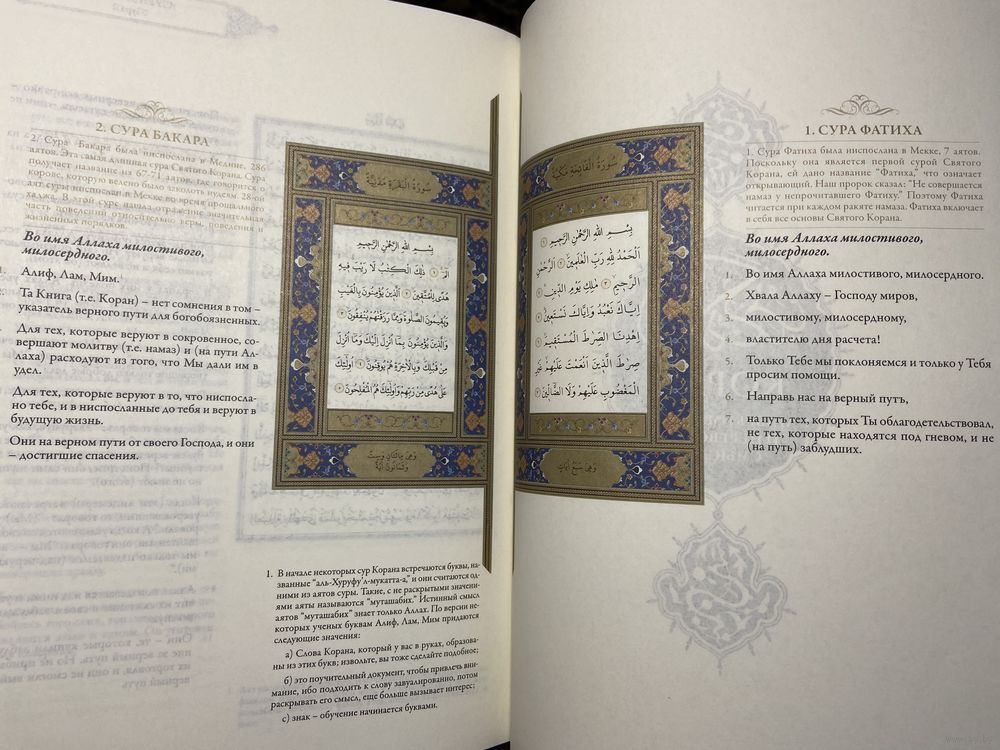 1. СУРА ФАТИХА
1. Сура Фатиха была ниспослана в Мекке, 7 аятов.
Поскольку она является первой сурой Святого
Корана, ей дано название "Фатиха," что означает
открывающий. Наш пророк сказал: "Не совершается
намаз у непрочитавшего Фатиху." Поэтому Фатиха
читается при каждом ракяте намаза. Фатиха включает
в себя все основы Святого Корана.
Во имя Аллаха милостивого,
милосердного.
1. Во имя Аллаха милостивого, милосердного.
2. Хвала Аллаху – Господу миров,
3. милостивому, милосердному,
4. властителю дня расчета!
5. Только Тебе мы поклоняемся и только у Тебя
просим помощи.
6. Направь нас на верный путь,
7. на путь тех, которых Ты облагодетельствовал,
не тех, которые находятся под гневом, и не
(на путь) заблудших.
سُورَةُ الْفَاتِحَةِ مَكِّيَّةٌ
بِسْمِ اللّٰهِ الرَّحْمٰنِ الرَّحِيمِ ١
اَلْحَمْدُ لِلّٰهِ رَبِّ الْعَالَمِينَ ٢ اَلرَّحْمٰنِ
الرَّحِيمِ ٣ مَالِكِ يَوْمِ الدِّينِ ٤
اِيَّاكَ نَعْبُدُ وَاِيَّاكَ نَسْتَعِينُ ٥
اِهْدِنَا الصِّرَاطَ الْمُسْتَقِيمَ ٦
صِرَاطَ الَّذِينَ اَنْعَمْتَ عَلَيْهِمْ غَيْرِ
الْمَغْضُوبِ عَلَيْهِمْ وَلَا الضَّالِّينَ ٧
وَهِيَ سَبْعُ آيَاتٍ
2. СУРА БАКАРА
2. Сура Бакара была ниспослана в Медине, 286
аятов. Эта самая длинная сура Святого Корана. Сура
получает название из 67-71 аятов, где говорится о
корове, которую велено было
аят суры ниспослан в Мекке во время прощального
хаджа. В этой суре нашла отражение значительная
часть повелений относительно веры, поведения и
жизненных порядков.
Во имя Аллаха милостивого,
милосердного.
1. Алиф, Лам, Мим.¹
Та Книга (т.е. Коран) – нет сомнения в том –
указатель верного пути для богобоязненных.
Для тех, которые веруют в сокровенное, со-
вершают молитву (т.е. намаз) и (на пути Ал-
лаха) расходуют из того, что Мы дали им в
удел.
Для тех, которые веруют в то, что ниспосла-
но тебе, и в ниспосланные до тебя и веруют в
будущую жизнь.
Они на верном пути от своего Господа, и они
– достигшие спасения.
سُورَةُ الْبَقَرَةِ مَدَنِيَّةٌ
بِسْمِ اللّٰهِ الرَّحْمٰنِ الرَّحِيمِ
الٓمٓ ١ ذٰلِكَ الْكِتَابُ لَا رَيْبَ فِيهِ
هُدًى لِلْمُتَّقِينَ ٢ اَلَّذِينَ يُؤْمِنُونَ بِالْغَيْبِ
وَيُقِيمُونَ الصَّلٰوةَ وَمِمَّا رَزَقْنَاهُمْ يُنْفِقُونَ ٣
وَالَّذِينَ يُؤْمِنُونَ بِمَا اُنْزِلَ اِلَيْكَ وَمَا اُنْزِلَ
مِنْ قَبْلِكَ وَبِالْاٰخِرَةِ هُمْ يُوقِنُونَ ٤ اُولٰئِكَ
عَلٰى هُدًى مِنْ رَبِّهِمْ وَاُولٰئِكَ هُمُ الْمُفْلِحُونَ ٥
وَهِيَ مِائَتَانِ وَسِتٌّ
وَثَمَانُونَ آيَةً
1. В начале некоторых сур Корана встречаются буквы, на-
званные "аль-Хуруфу'л-мукатта-а," и они считаются од-
ними из аятов суры. Такие, с не раскрытыми значени-
ями аяты называются "муташабих." Истинный смысл
аятов "муташабих" знает только Аллах. По версии не-
которых ученых буквам Алиф, Лам, Мим придаются
следующие значения:
а) Слова Корана, который у вас в руках, образова-
ны из этих букв; извольте, вы тоже сделайте подобное;
б) это поучительный документ, чтобы привлечь вни-
мание, ибо подходить к слову завуалированно, потом
раскрывать его смысл, еще больше вызывает интерес;
с) знак – обучение начинается буквами.